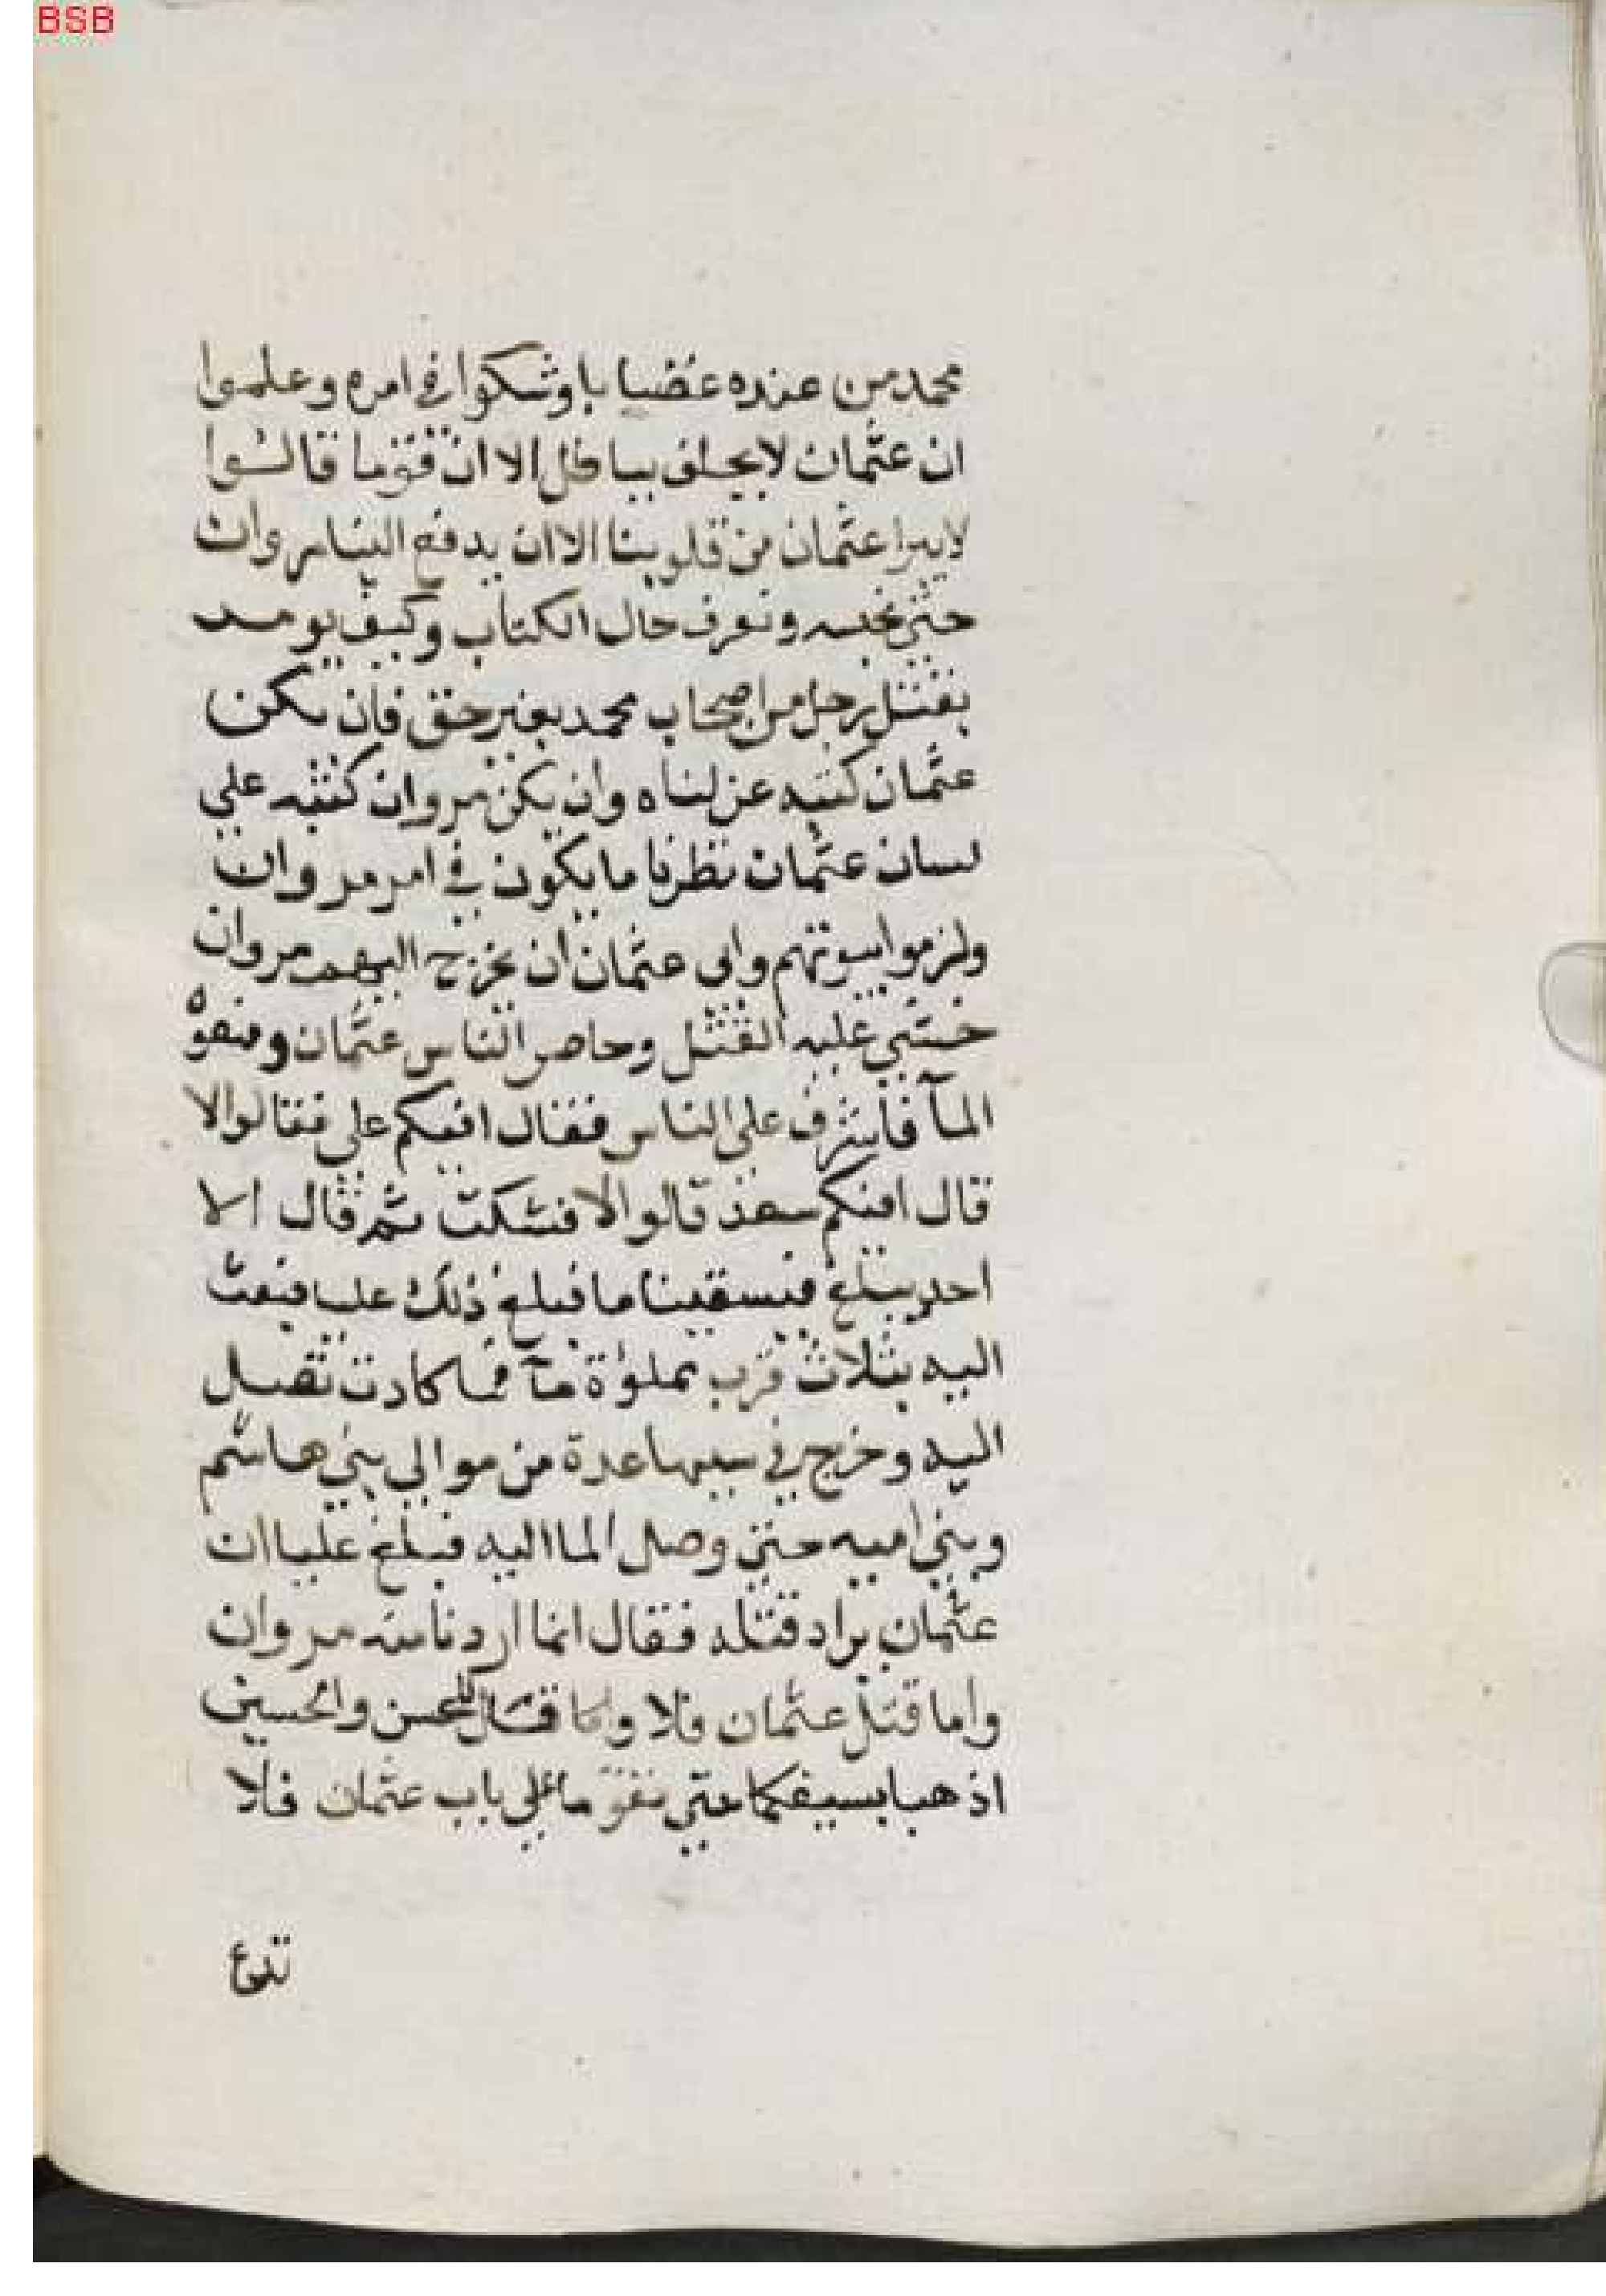 BSB
محمد من عنده غضبابا وشكوا في امره وعلموا
ان عثمان لا يحلف بباطل الا ان قوما قالوا
لا يبرا عثمان من قلوبنا الا ان يدفع الينا مروان
حتى نحبسه ونعرف حال الكتاب وكيف يومر
بقتل رجل من اصحاب محمد بغير حق فان يكن
عثمان كتبه عزلناه وان يكن مروان كتبه على
لسان عثمان نظرنا ما يكون في امر مروان
ولزموا بيوتهم وابى عثمان ان يخرج اليهم مروان
خشي عليه القتل وحاصر الناس عثمان ومنعوه
المآ فاشرف على الناس فقال افيكم علي فقالوا لا
قال افيكم سعد قالوا لا فسكت ثم قال الا
احد يبلغ فيسقينا ما فبلغ ذلك عليا فبعث
اليه بثلاث قرب مملوة مآ فما كادت تصل
اليه وخرج في سببها عدة من موالي بني هاشم
وبني اميه حتى وصل الما اليه فبلغ عليا ان
عثمان يراد قتله فقال انما اردنا منه مروان
واما قتل عثمان فلا وقال للحسن والحسين
اذهبا بسيفكما حتى تقوما على باب عثمان فلا
تدع